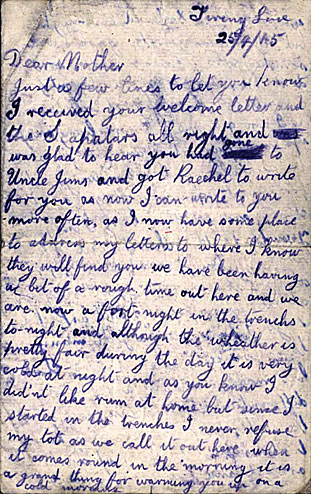 25/4/15
Dear Mother
Just a few lines to let you know
I received your welcome letter and
the S apatars all right and
was glad to hear you had gone to
Uncle Jims and got Raechel to write
for you as now I can write to you
more often, as I now have some place
to address my letters to where I know
they will find you we have been having
a bit of a rough time out here and we
are now a fort-night in the trenchs
to-night and although the wheather is
pretty fair during the day it is very
cold at night and as you know I
did'nt like rum at home but since I
started in the trenches I never refuse
my tot as we call it out here when
it comes round in the morning it is
a grand thing for warming you up on a
cold morning